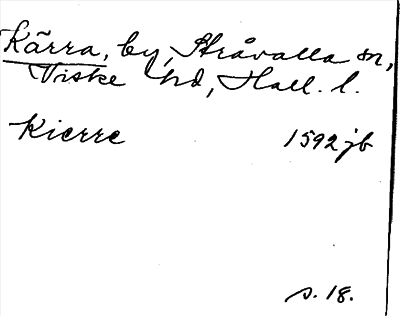 Kärra, by, Stråvalla sn,
Viske hd, Hall. l.
Kierre 1592 jb
s. 18.